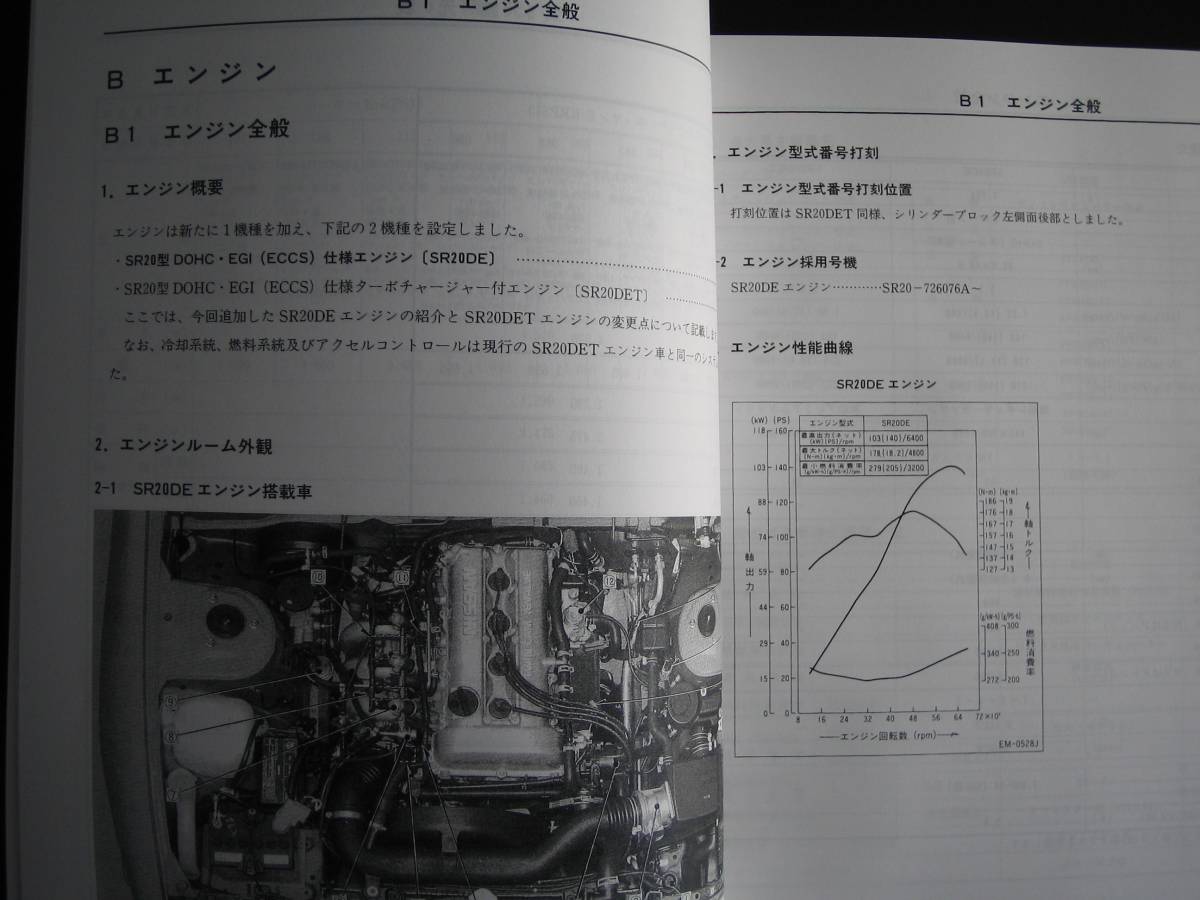 B1 エンジン全般
B エンジン
B1 エンジン全般
1. エンジン概要
エンジンは新たに1機種を加え、下記の2機種を設定しました。
・SR20型 DOHC・EGI(ECCS)仕様エンジン〔SR20DE〕 ……………………
・SR20型 DOHC・EGI(ECCS)仕様ターボチャージャー付エンジン〔SR20DET〕 ………
ここでは、今回追加した SR20DE エンジンの紹介と SR20DET エンジンの変更点について記載しま
なお、冷却系統、燃料系統及びアクセルコントロールは現行の SR20DET エンジン車と同一のシステ
た。
2. エンジンルーム外観
2-1 SR20DE エンジン搭載車
⑩ ⑪ ⑫
⑨
⑧
⑦
NISSAN
B1 エンジン全般
. エンジン型式番号打刻
-1 エンジン型式番号打刻位置
打刻位置は SR20DET 同様、シリンダーブロック左側面後部としました。
-2 エンジン採用号機
SR20DE エンジン…………SR20-726076A~
エンジン性能曲線
SR20DE エンジン
(kW) (PS)
118 160
103 140
88 120
74 100
59 80
44 60
29 40
15 20
0 0
軸出力
エンジン型式 SR20DE
最高出力(ネット) (kW){PS}/rpm 103{140}/6400
最大トルク(ネット) (N-m){kg-m}/rpm 178{18.2}/4800
最小燃料消費率 (g/kW-h){g/PS-h}/rpm 279{205}/3200
(N-m) (kg-m)
186 19
176 18
167 17
157 16
147 15
137 14
127 13
軸トルク
(g/kW-h) (g/PS-h)
408 300
340 250
272 200
燃料消費率
8 16 24 32 40 48 56 64 72×10²
エンジン回転数 (rpm)
EM-0528J